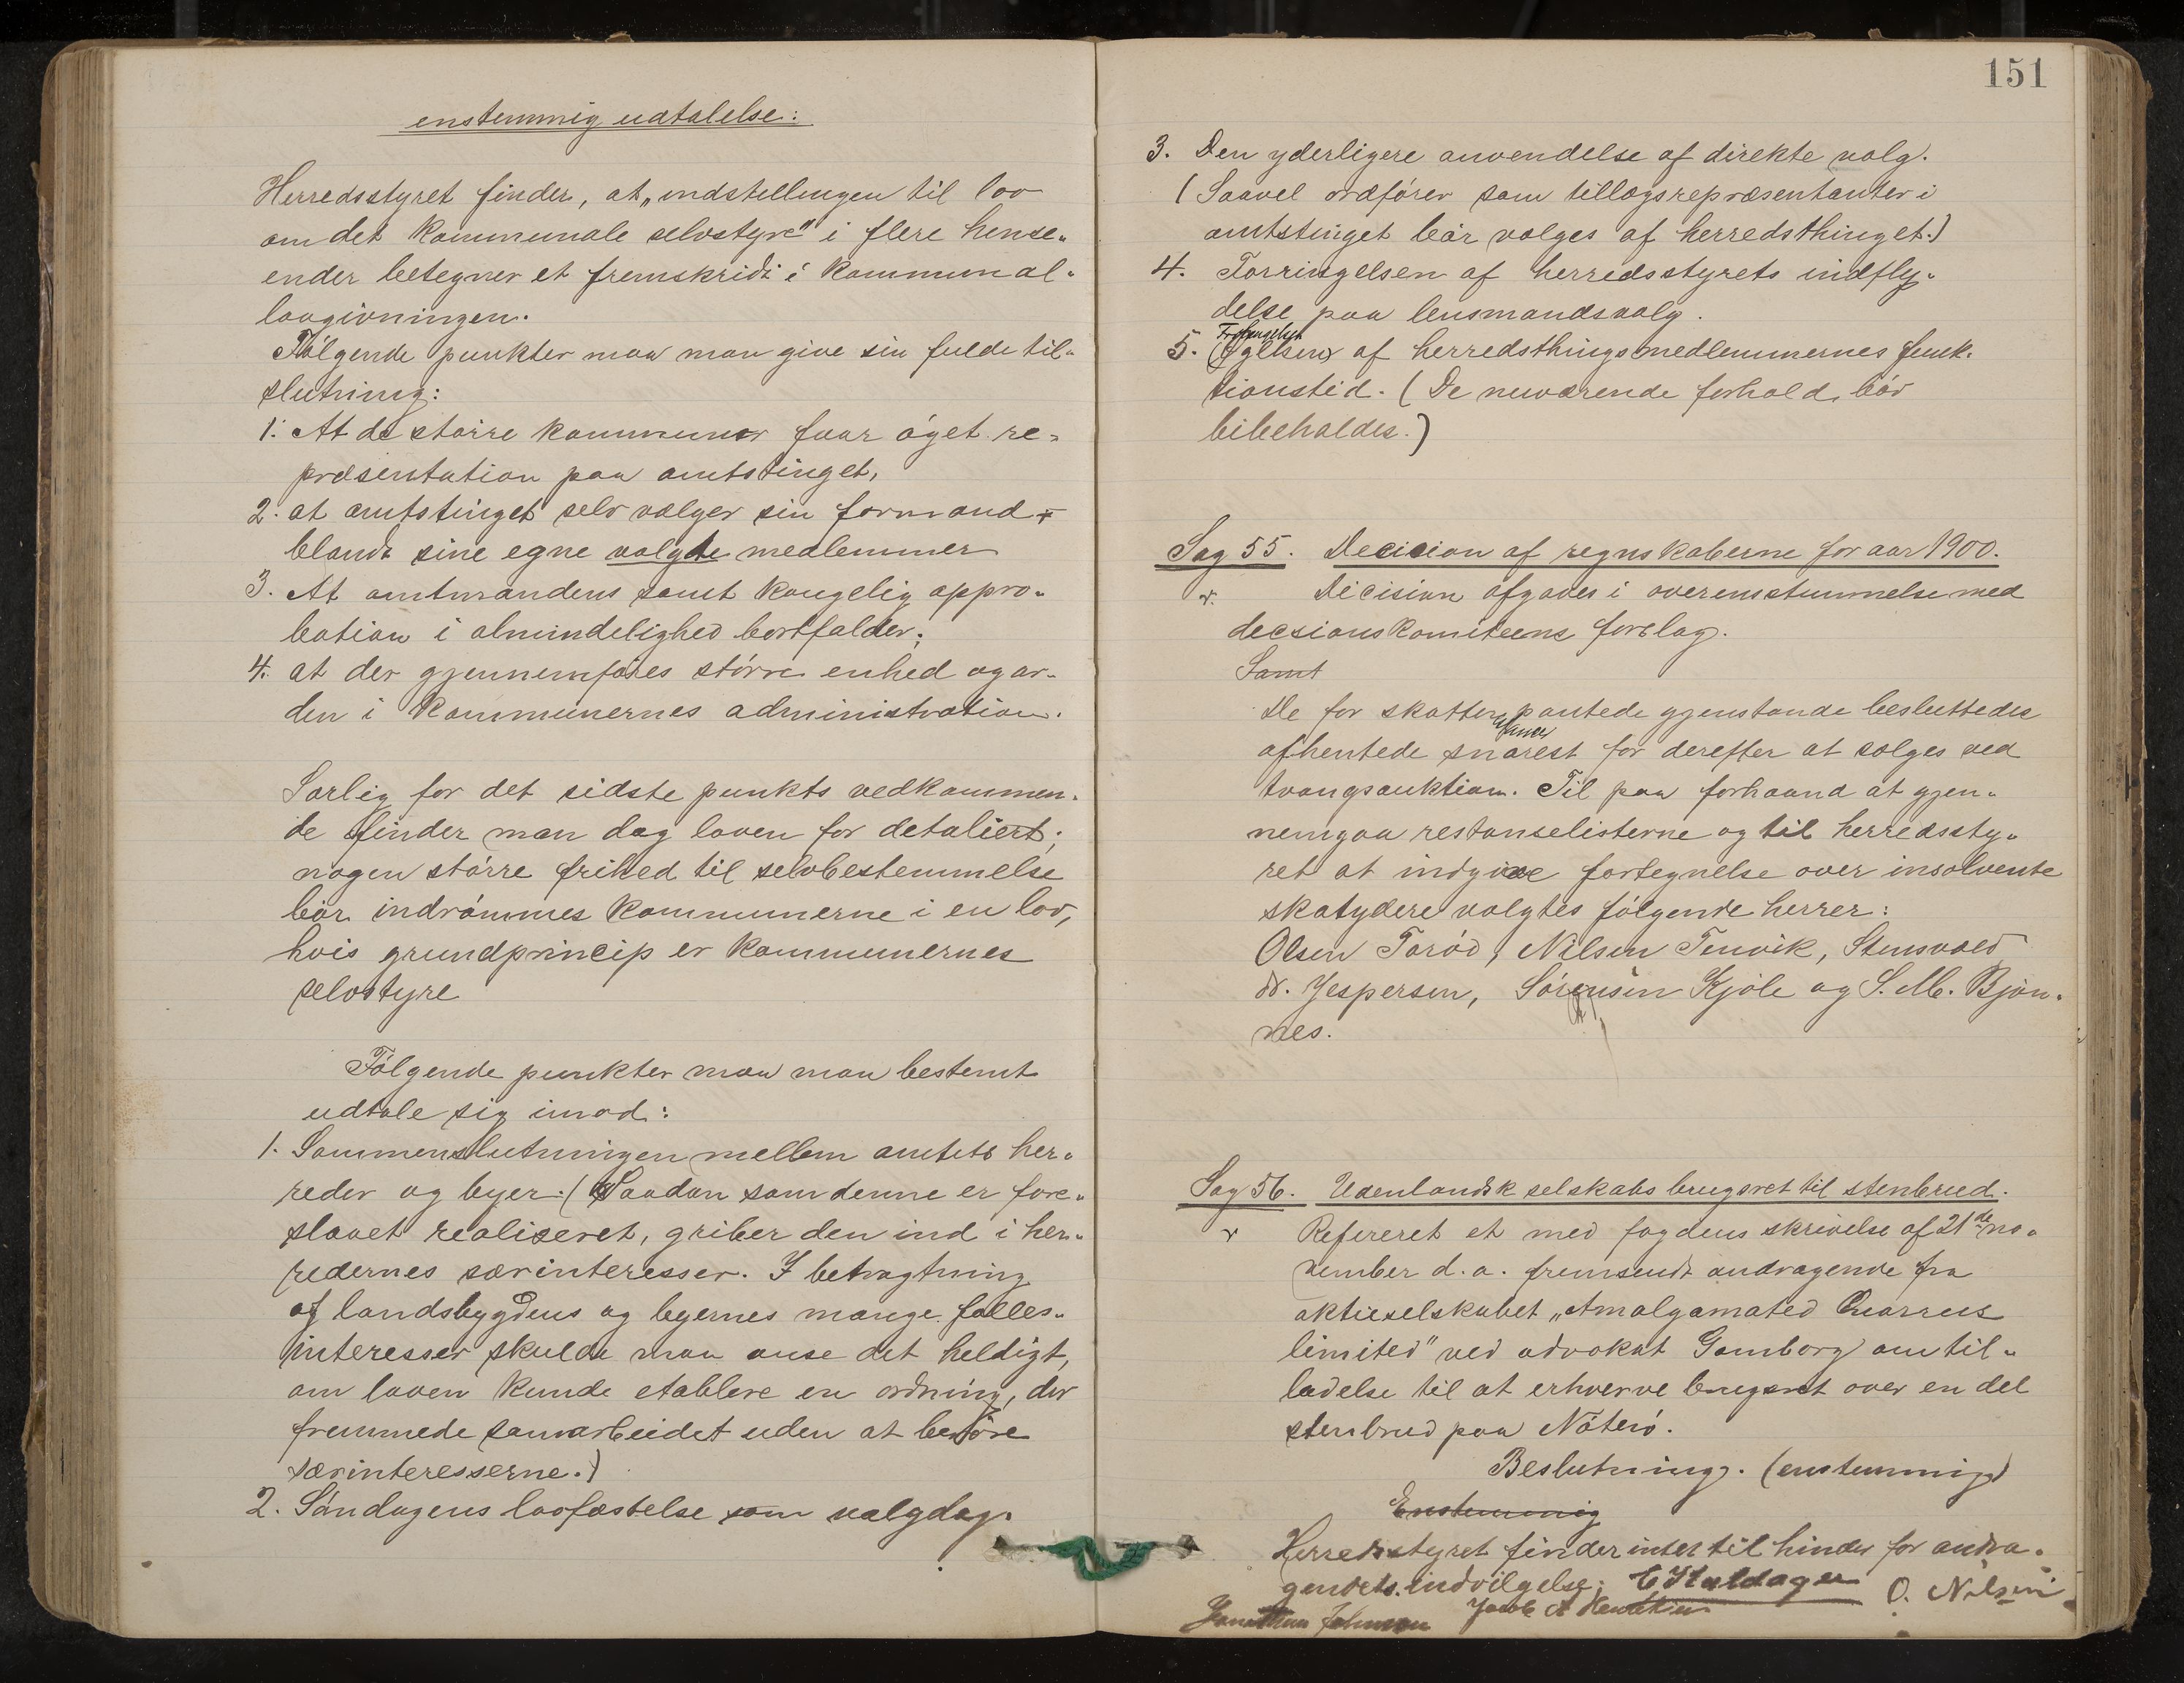 enstemmig udtalelse:
Herredsstyret finder, at „indstillingen til lov
om det kommunale selvstyre" i flere hense-
ender betegner et fremskridt i kommunal-
lovgivningen.
Følgende punkter maa man give sin fulde til-
slutning:
1. At de større kommuner faar øget re-
præsentation paa amtstinget,
2. at amtstinget selv vælger sin formand
blandt sine egne valgte medlemmer
3. At amtmandens samt kongelig appro-
bation i almindelighed bortfalder;
4. at der gjennemføres større enhed og or-
den i kommunernes administration.
Særlig for det sidste punkts vedkommen-
de finder man dog loven for detaliert;
nogen større frihed til selvbestemmelse
bør indrømmes kommunerne i en lov,
hvis grundprincip er kommunernes
selvstyre
Følgende punkter maa man bestemt
udtale sig imod:
1. Sammenslutningen mellem amtets her-
reder og byer. (Saadan som denne er fore-
slaaet realiseret, griber den ind i her-
redernes særinteresser. I betragtning
af landsbygdens og byernes mange fælles-
interesser skulde man anse det heldigt,
om loven kunde etablere en ordning, der
fremmede samarbeidet uden at berøre
særinteresserne.)
2. Søndagens lovfæstelse som valgdag.
151
3. Den yderligere anvendelse af direkte valg.
(Saavel ordfører som tillægsrepræsentanter i
amtstinget bør vælges af herredsthinget.)
4. Forringelsen af herredsstyrets indfly-
delse paa lensmandsvalg.
5. af herredsthingsmedlemmernes funk-
tionstid. (De nuværende forhold bør
bibeholdes.)
Sag 55. Decision af regnskaberne for aar 1900.
Decision afgaves i overensstemmelse med
decsionskomiteens forslag.
Samt
De for skatter pantede gjenstande besluttedes
afhentede snarest for derefter at sælges ved
tvangsauktion. Til paa forhaand at gjen-
nemgaa restanselisterne og til herredssty-
ret at indgive fortegnelse over insolvente
skatydere valgtes følgende herrer:
Olsen Torød, Nilsen Tenvik, Stensvold
N. Jespersen, Sørensen Kjøle og S. M. Bjøn-
nes.
Sag 56. Udenlandsk selskabs brugsret til stenbrud.
Refereret et med fogdens skrivelse af 21de no-
vember d. a. fremsendt andragende fra
aktieselskabet „Amalgamated Quarries
limited" ved advokat Gamborg om til-
ladelse til at erhverve brugsret over en del
stenbrud paa Nøterø.
Beslutning. (enstemmig)
Enstemmig
Herredsstyret finder intet til hinder for andra-
gendets indvilgelse;
O. Nilsen
Jonathan Johnsen